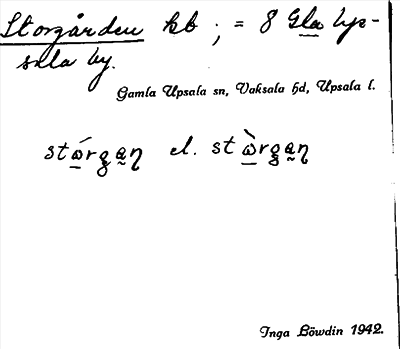 Storgården kb ; = 8 Gla Upp-
sala by.
Gamla Upsala sn, Vaksala hd, Upsala l.
stώ̲rga̰ɳ el. stὼ̲rga̰ɳ
Inga Löwdin 1942.